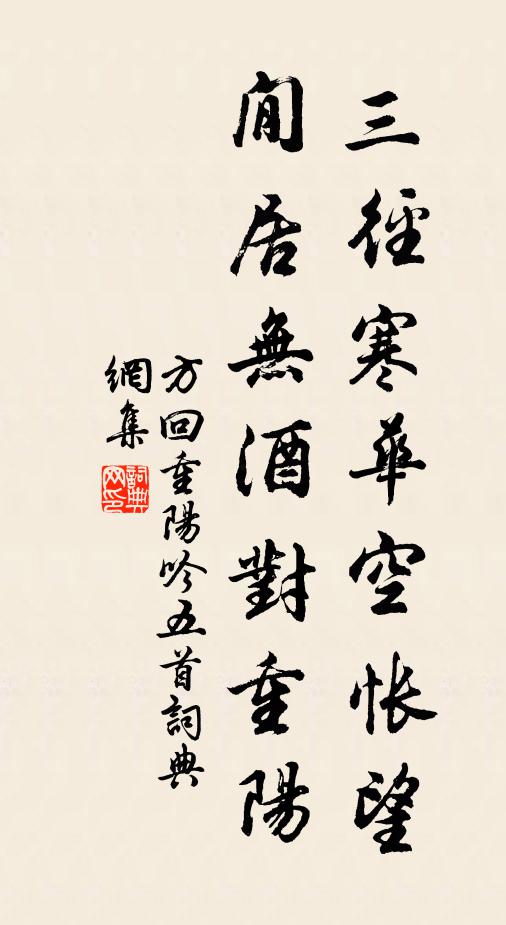 三徑寒華空悵望
閒居無酒對重陽
方回重陽吟五首詞典
網集
詞典网印